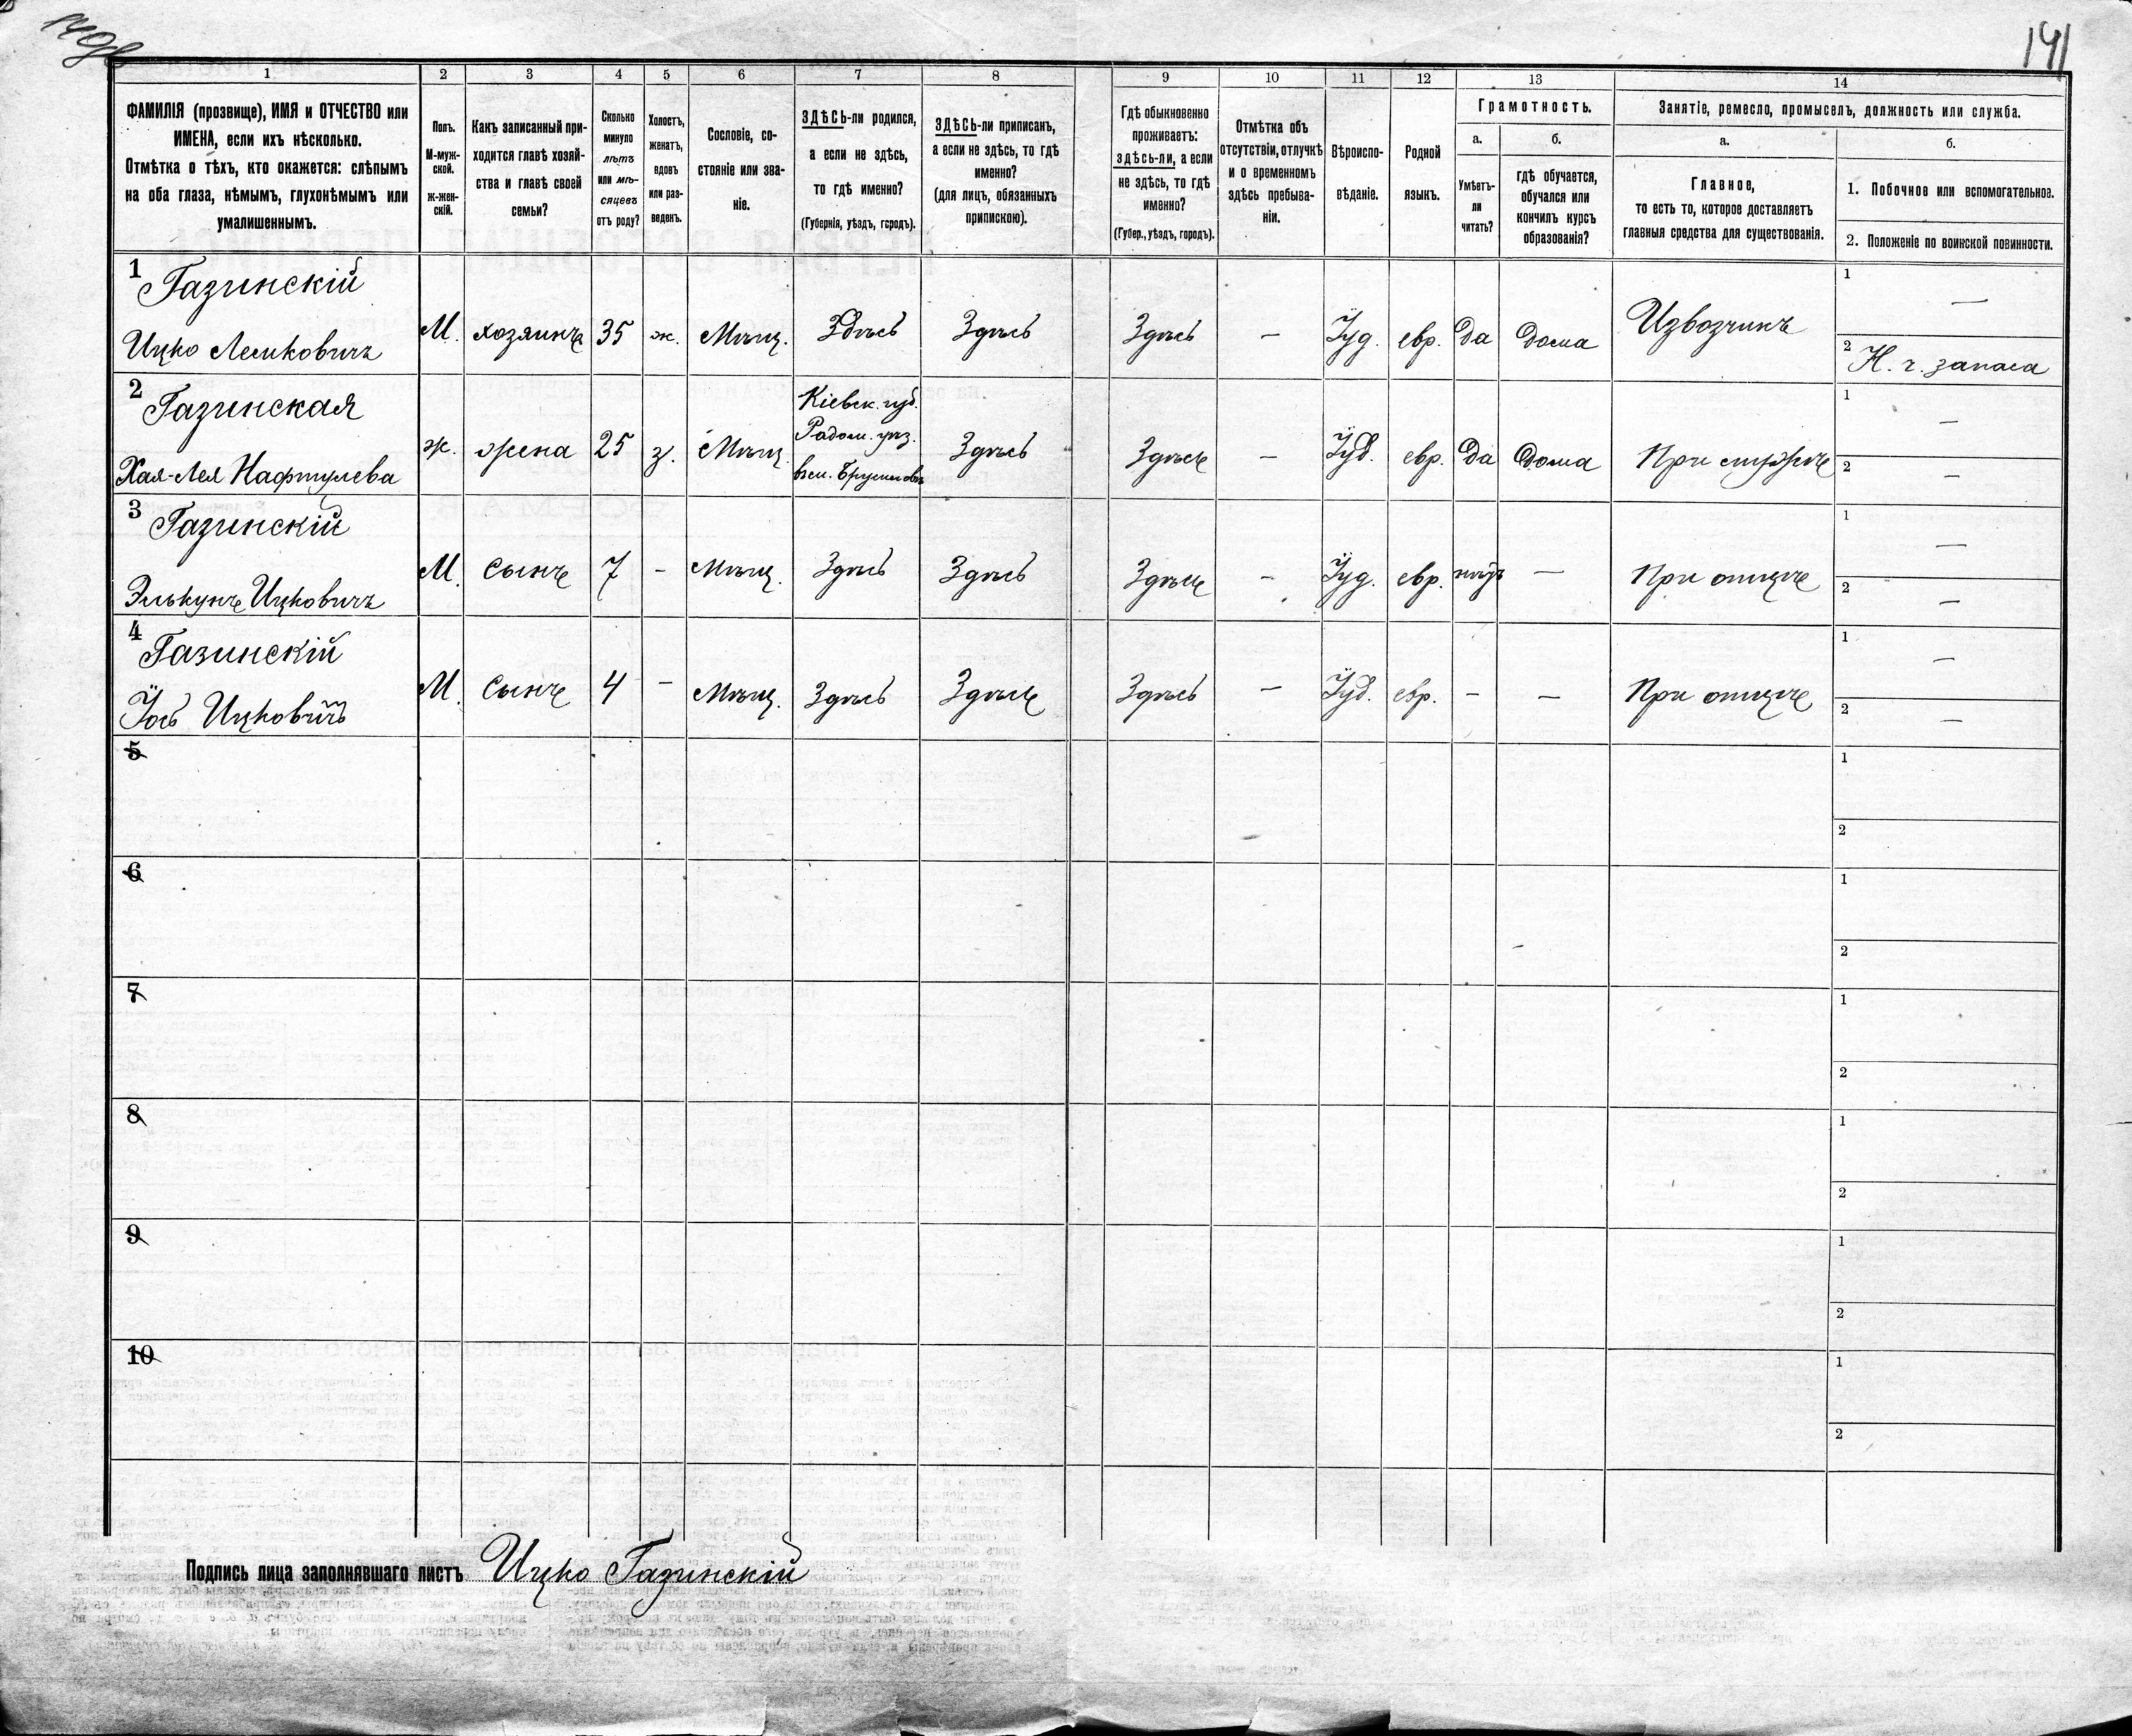 141
1 2 3 4 5 6 7 8 9 10 11 12 13 14
ФАМИЛІЯ (прозвище), ИМЯ и ОТЧЕСТВО или
ИМЕНА, если ихъ нѣсколько.
Отмѣтка о тѣхъ, кто окажется: слѣпымъ
на оба глаза, нѣмымъ, глухонѣмымъ или
умалишеннымъ.
Полъ.
М-муж-
ской.
ж-жен-
скій.
Какъ записанный при-
ходится главѣ хозяй-
ства и главѣ своей
семьи?
Сколько
минуло
лѣтъ
или мѣ-
сяцевъ
отъ роду?
Холостъ,
женатъ,
вдовъ
или раз-
веденъ.
Сословіе, со-
стояніе или зва-
ніе.
ЗДѢСЬ-ли родился,
а если не здѣсь,
то гдѣ именно?
(Губернія, уѣздъ, городъ).
ЗДѢСЬ-ли приписанъ,
а если не здѣсь, то гдѣ
именно?
(для лицъ, обязанныхъ
припискою).
Гдѣ обыкновенно
проживаетъ:
здѣсь-ли, а если
не здѣсь, то гдѣ
именно?
(Губер., уѣздъ, городъ).
Отмѣтка объ
отсутствіи, отлучкѣ
и о временномъ
здѣсь пребыва-
ніи.
Вѣроиспо-
вѣданіе.
Родной
языкъ.
Грамотность.
а.
Умѣетъ-
ли
читать?
б.
гдѣ обучается,
обучался или
кончилъ курсъ
образованія?
Занятіе, ремесло, промыселъ, должность или служба.
а.
Главное,
то есть то, которое доставляетъ
главныя средства для существованія.
б.
1. Побочное или вспомогательное.
2. Положеніе по воинской повинности.
1 Газинскій
Ицко Лейковичъ
М. хозяинъ 35 ж. Мѣщ. Здѣсь Здѣсь Здѣсь — Іуд. евр. Да Дома Извозчикъ
1 —
2 Н. ч. запаса
2 Газинская
Хая-Лея Нафтулева
ж. жена 25 з. Мѣщ.
Кіевск. губ.
Радом. уѣз.
Здѣсь Здѣсь — Іуд. евр. Да Дома При мужѣ
1 —
2 —
3 Газинскій
Элькунъ Ицковичъ
М. Сынъ 7 - Мѣщ. Здѣсь Здѣсь Здѣсь — Іуд. евр. нѣтъ — При отцѣ
1 —
2 —
4 Газинскій
Іось Ицковичъ
М. Сынъ 4 - Мѣщ. Здѣсь Здѣсь Здѣсь — Іуд. евр. - — При отцѣ
1 —
2 —
5
1
2
6
1
2
7
1
2
8
1
2
9
1
2
10
1
2
Подпись лица заполнявшаго листъ Ицко Газинскій